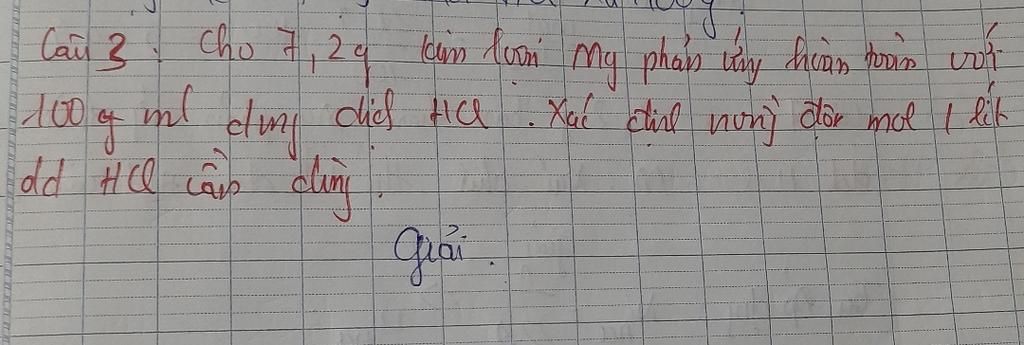 Câu 3: Cho 7,2g kim loại Mg phản ứng hoàn toàn với
100 g ml dung dịch HCl. Xác định nồng độ mol / lít
dd HCl cần dùng.
Giải.